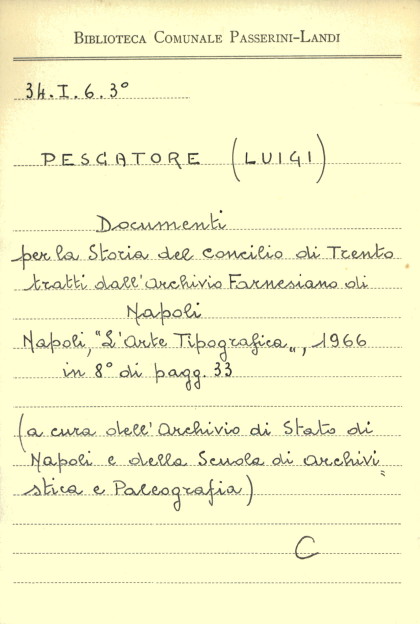 BIBLIOTECA COMUNALE PASSERINI-LANDI
34.I.6.3°
PESCATORE (LUIGI)
Documenti
per la Storia del concilio di Trento
tratti dall'Archivio Farnesiano di
Napoli
Napoli, "L'Arte Tipografica", 1966
in 8° di pagg. 33
(a cura dell'Archivio di Stato di
Napoli e della Scuola di Archivi=
stica e Paleografia)
C